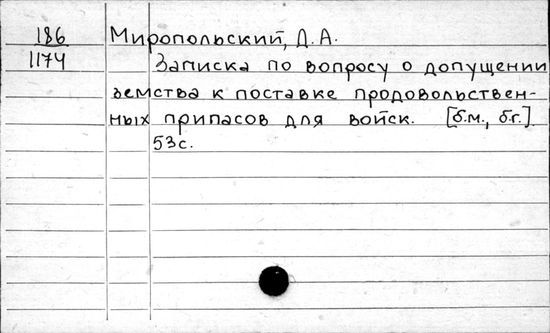 186 Миропольский, Д. А.
1174 Записка по вопросу о допущении
земства к поставке продовольствен-
ных припасов для войск. [б.м., б.г.].
53с.